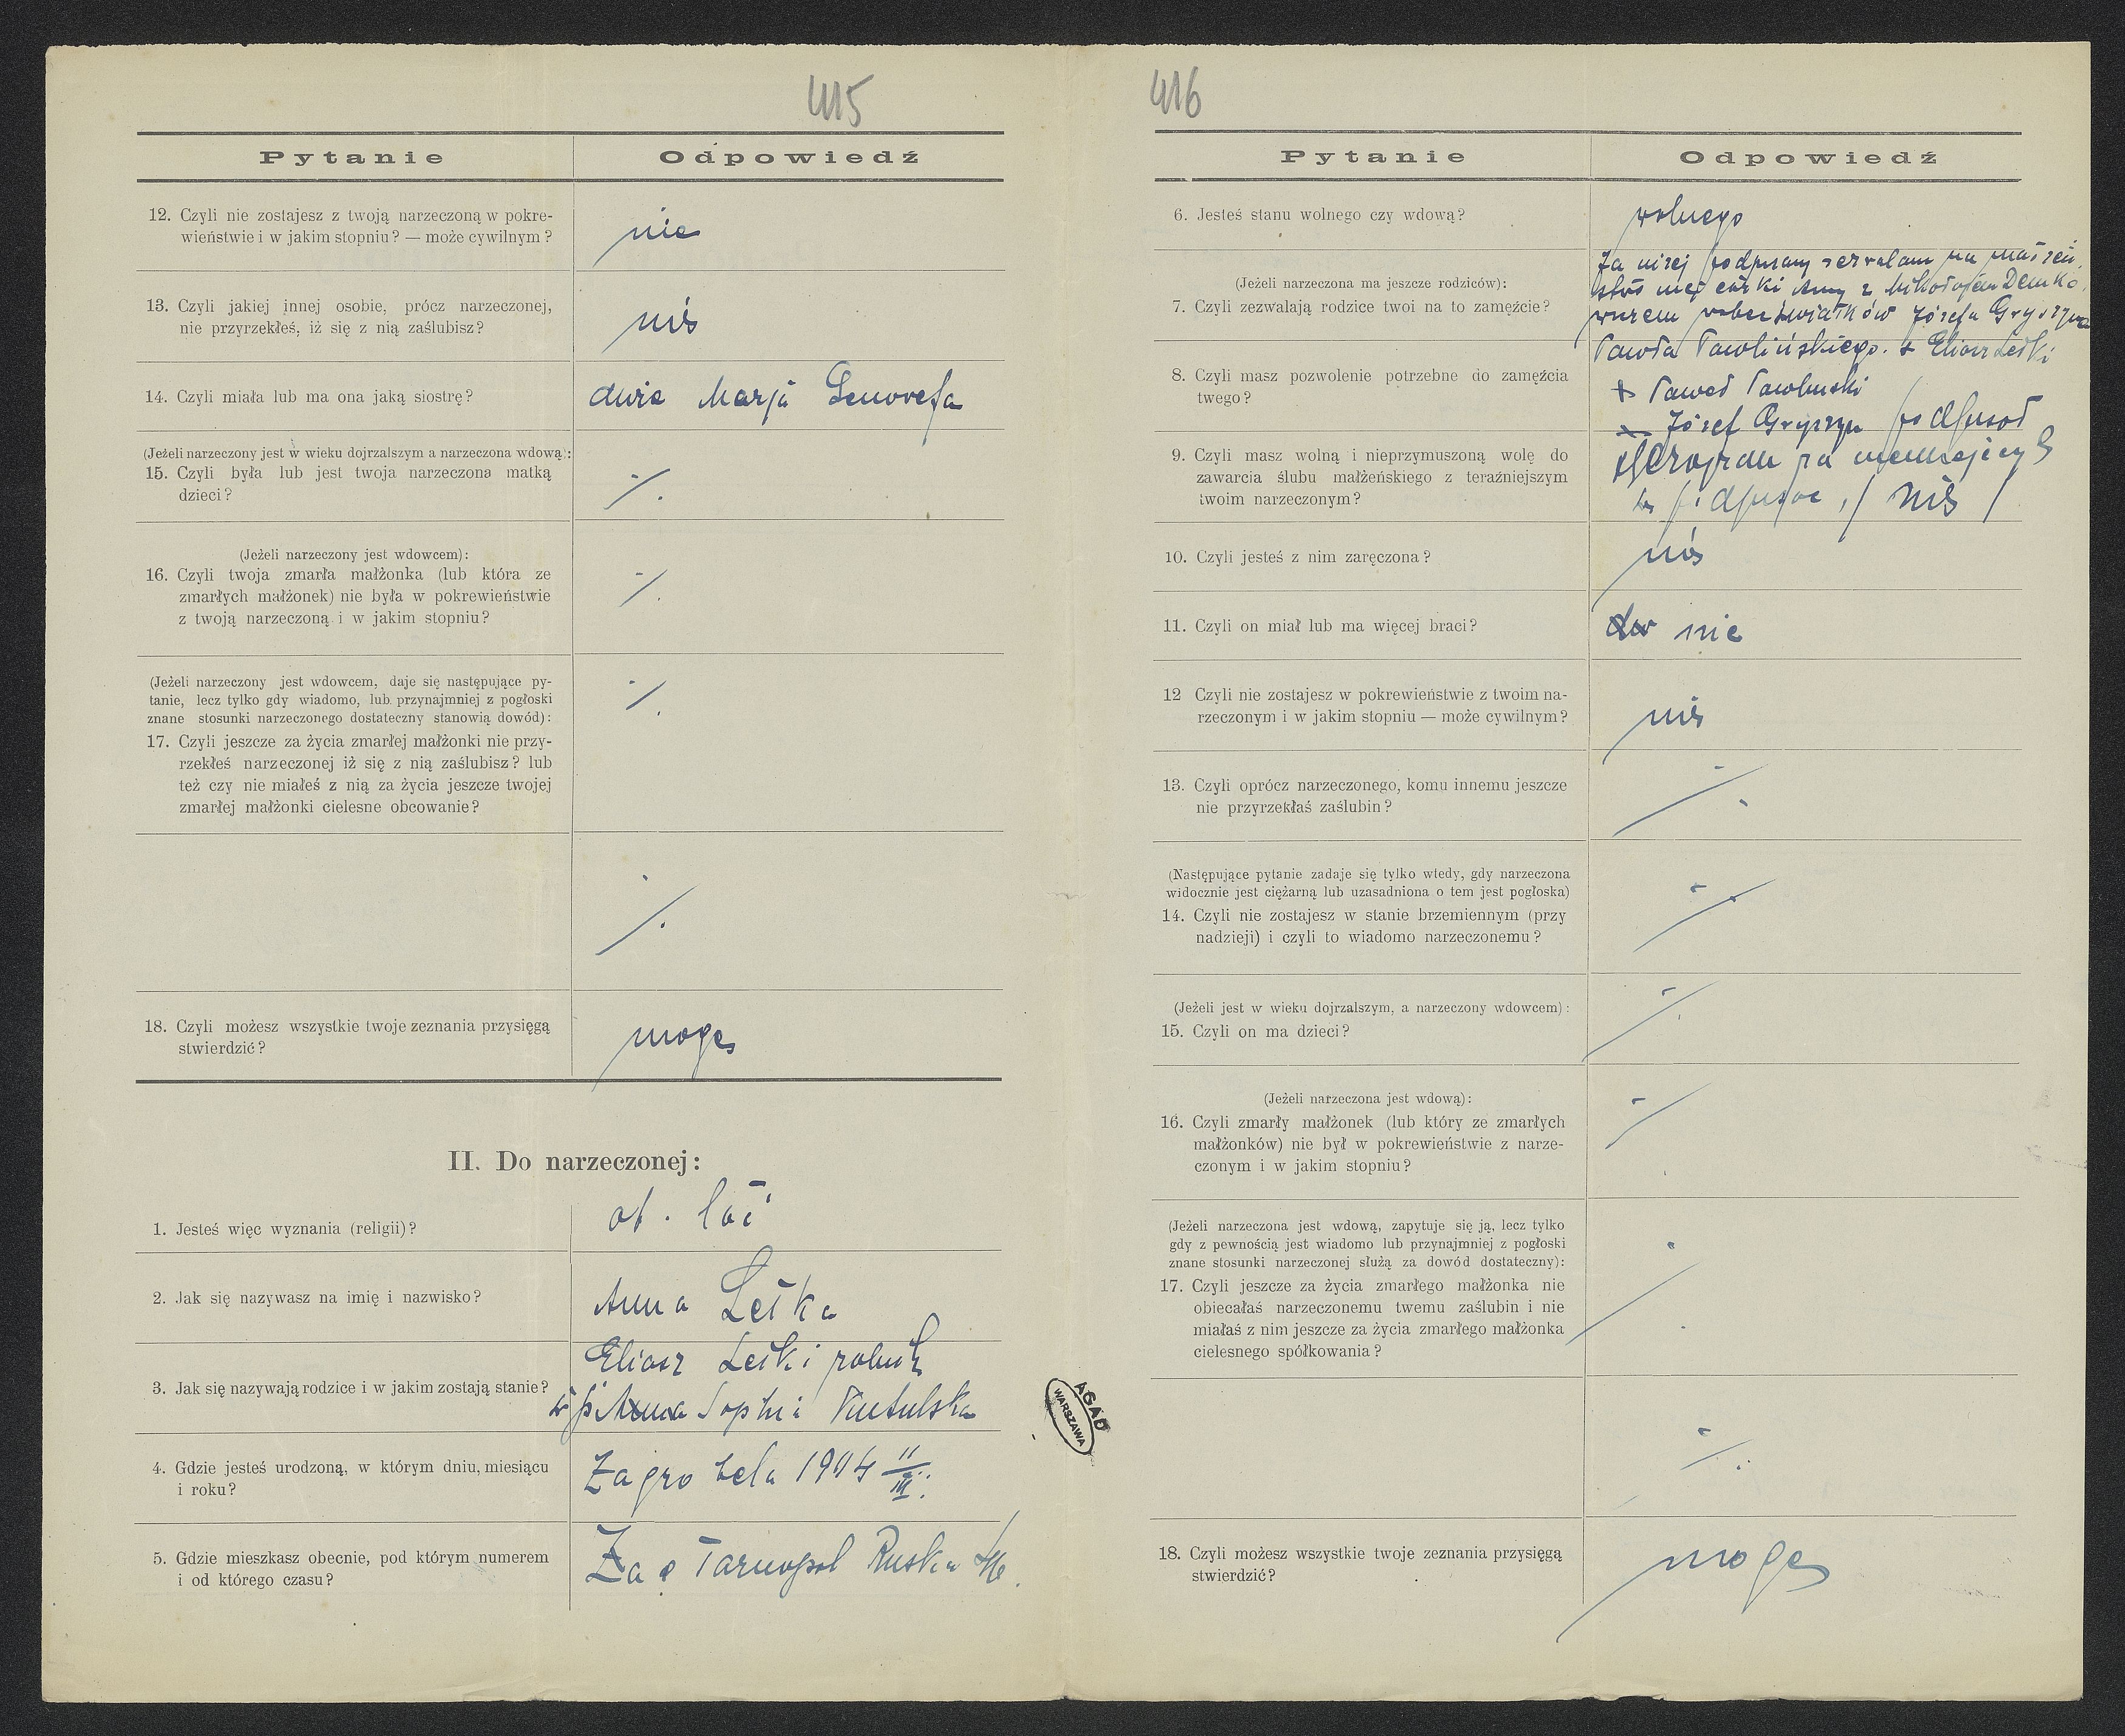 415
Pytanie
Odpowiedź
12. Czyli nie zostajesz z twoją narzeczoną w pokre-
wieństwie i w jakim stopniu? — może cywilnym?
nie
13. Czyli jakiej innej osobie, prócz narzeczonej,
nie przyrzekłeś, iż się z nią zaślubisz?
nie
14. Czyli miała lub ma ona jaką siostrę?
dwie Marja Genovefa
(Jeżeli narzeczony jest w wieku dojrzalszym a narzeczona wdową):
15. Czyli była lub jest twoja narzeczona matką
dzieci?
(Jeżeli narzeczony jest wdowcem):
16. Czyli twoja zmarła małżonka (lub która ze
zmarłych małżonek) nie była w pokrewieństwie
z twoją narzeczoną i w jakim stopniu?
(Jeżeli narzeczony jest wdowcem, daje się następujące py-
tanie, lecz tylko gdy wiadomo, lub przynajmniej z pogłoski
znane stosunki narzeczonego dostateczny stanowią dowód):
17. Czyli jeszcze za życia zmarłej małżonki nie przy-
rzekłeś narzeczonej iż się z nią zaślubisz? lub
też czy nie miałeś z nią za życia jeszcze twojej
zmarłej małżonki cielesne obcowanie?
18. Czyli możesz wszystkie twoje zeznania przysięgą
stwierdzić?
mogę
II. Do narzeczonej:
1. Jesteś więc wyznania (religii)?
ob. łać
2. Jak się nazywasz na imię i nazwisko?
Anna Leśka
3. Jak się nazywają rodzice i w jakim zostają stanie?
Eliasz Leśki rolnik
Anna Sophia
4. Gdzie jesteś urodzoną, w którym dniu, miesiącu
i roku?
Zagrobela 1904 11
5. Gdzie mieszkasz obecnie, pod którym numerem
i od którego czasu?
Tarnopol Ruska
AGAD
WARSZAWA
416
Pytanie
Odpowiedź
6. Jesteś stanu wolnego czy wdową?
wolnego
(Jeżeli narzeczona ma jeszcze rodziców):
7. Czyli zezwalają rodzice twoi na to zamęźcie?
Ja niżej podpisany zezwalam na małżeń
stwo mej córki Anny z Mikołajem Demko
wobec świadków Józefa Gryszyna
Pawła Pawlińskiego. + Eliasz Leśki
8. Czyli masz pozwolenie potrzebne do zamęźcia
twego?
+ Paweł Pawliński
Józef Gryszyn podpisał
9. Czyli masz wolną i nieprzymuszoną wolę do
zawarcia ślubu małżeńskiego z teraźniejszym
twoim narzeczonym?
za nieumiejących
nie
10. Czyli jesteś z nim zaręczona?
nie
11. Czyli on miał lub ma więcej braci?
nie
12 Czyli nie zostajesz w pokrewieństwie z twoim na-
rzeczonym i w jakim stopniu — może cywilnym?
nie
13. Czyli oprócz narzeczonego, komu innemu jeszcze
nie przyrzekłaś zaślubin?
(Następujące pytanie zadaje się tylko wtedy, gdy narzeczona
widocznie jest ciężarną lub uzasadniona o tem jest pogłoska)
14. Czyli nie zostajesz w stanie brzemiennym (przy
nadzieji) i czyli to wiadomo narzeczonemu?
(Jeżeli jest w wieku dojrzalszym, a narzeczony wdowcem):
15. Czyli on ma dzieci?
(Jeżeli narzeczona jest wdową):
16. Czyli zmarły małżonek (lub który ze zmarłych
małżonków) nie był w pokrewieństwie z narze-
czonym i w jakim stopniu?
(Jeżeli narzeczona jest wdową, zapytuje się ją, lecz tylko
gdy z pewnością jest wiadomo lub przynajmniej z pogłoski
znane stosunki narzeczonej służą za dowód dostateczny):
17. Czyli jeszcze za życia zmarłego małżonka nie
obiecałaś narzeczonemu twemu zaślubin i nie
miałaś z nim jeszcze za życia zmarłego małżonka
cielesnego spółkowania?
18. Czyli możesz wszystkie twoje zeznania przysięgą
stwierdzić?
mogę